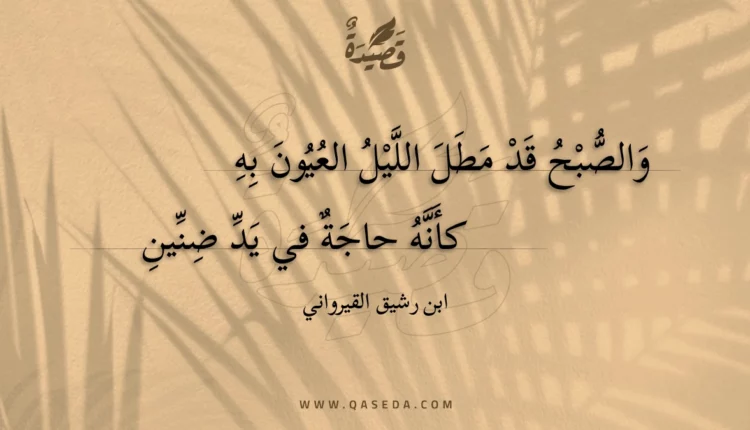 قَصِيْدَةٌ
وَالصُّبْحُ قَدْ مَطَلَ اللَّيْلُ العُيُونَ بِهِ
كأَنَّهُ حاجَةٌ في يَدِّ ضِنِّينِ
ابن رشيق القيرواني
WWW.QASEDA.COM